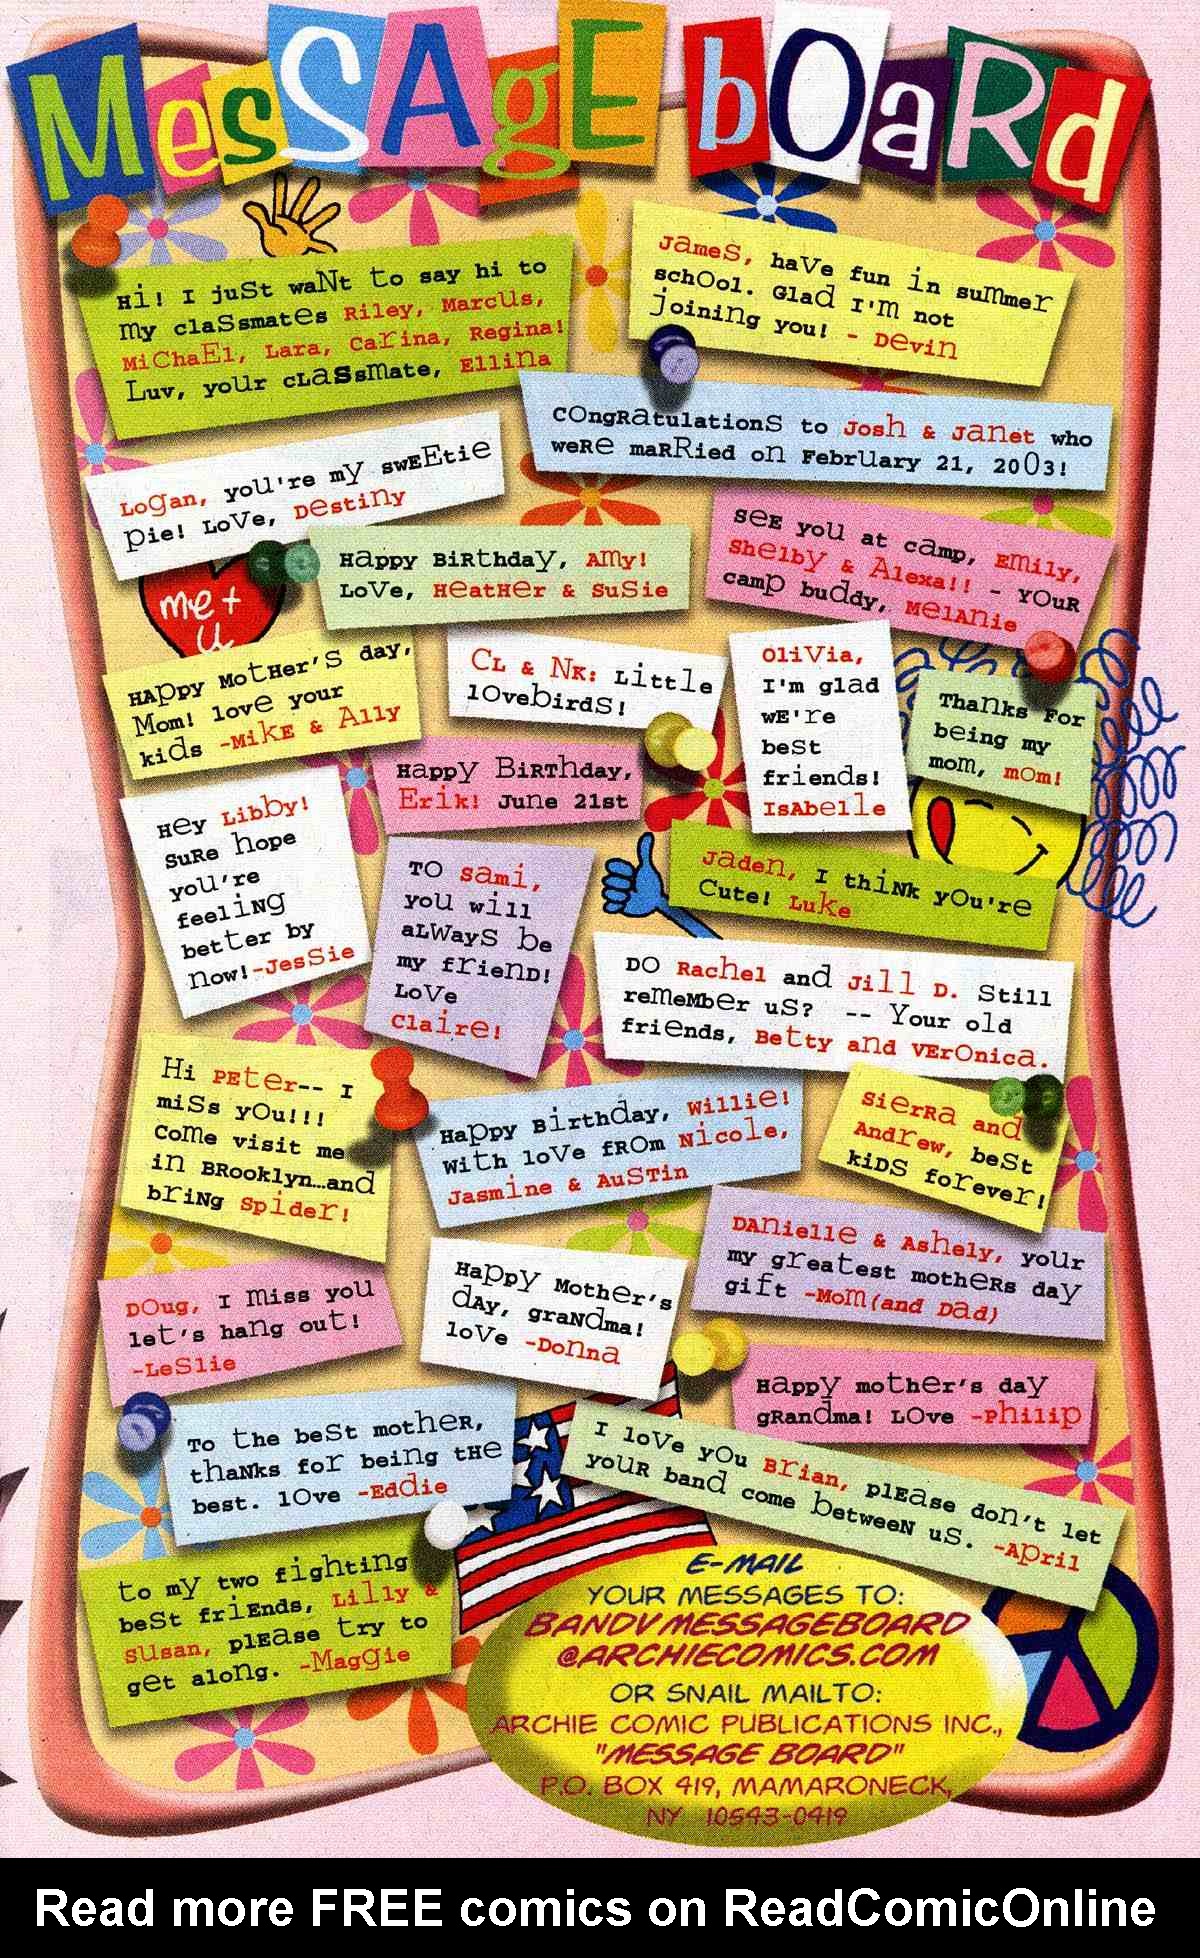 MesSAgE bOaRd
Hi! I juSt waNt to say hi to
my claSsmates Riley, Marcus,
MiChaEl, Lara, Carina, Regina!
Luv, your cLasSmate, Ellina
JameS, haVe fun in summer
schOol. Glad I'm not
joining you! - Devin
COngRatulationS to Josh & Janet who
weRe maRRied on February 21, 2003!
Logan, you're my swEEtie
pie! LoVe, Destiny
me +
u
Happy BiRthday, Amy!
LoVe, HeatHer & SuSie
SeE you at camp, Emily,
Shelby & Alexa!! - YOuR
camp buddy, MelANie
HAppy MotHer's day,
Mom! love your
kids -MikE & Ally
CL & NK: Little
lOvebirdS!
OliVia,
I'm glad
wE're
beSt
friends!
IsAbelle
ThaNks For
being my
mom, mom!
Happy BiRThday,
Erik! June 21st
Hey Libby!
SuRe hope
you're
feeliNg
better by
now!-JesSie
TO Sami,
you will
aLWayS be
my frienD!
LoVe
Claire!
Jaden, I thiNk yOu're
Cute! Luke
DO Rachel and Jill D. Still
reMeMber uS? -- Your old
friends, Betty and VErOnica.
Hi PEter-- I
miSs yOu!!!
CoMe visit me
in BRooklyn…and
briNg Spider!
Happy Birthday, Willie!
With loVe fROm Nicole,
Jasmine & AuSTin
SierRa and
Andrew, beSt
kiDS forever!
DAnielle & Ashely, your
my greatest motheRs day
gift -MoM(and Dad)
DOug, I miss you
let's hang out!
-LeSlie
Happy Mother's
dAy, graNdma!
loVe -DoNna
Happy mother's day
gRandma! LOve -Philip
To the beSt motheR,
thaNks for being tHe
best. lOve -Eddie
I loVe yOu Brian, plEase don't let
youR band come betweeN uS. -April
to my two fighting
beSt friEnds, Lilly &
Susan, plEase try to
get along. -Maggie
E-MAIL
YOUR MESSAGES TO:
BANDVMESSAGEBOARD
@ARCHIECOMICS.COM
OR SNAIL MAIL TO:
ARCHIE COMIC PUBLICATIONS INC.,
"MESSAGE BOARD"
P.O. BOX 419, MAMARONECK,
NY 10543-0419
Read more FREE comics on ReadComicOnline